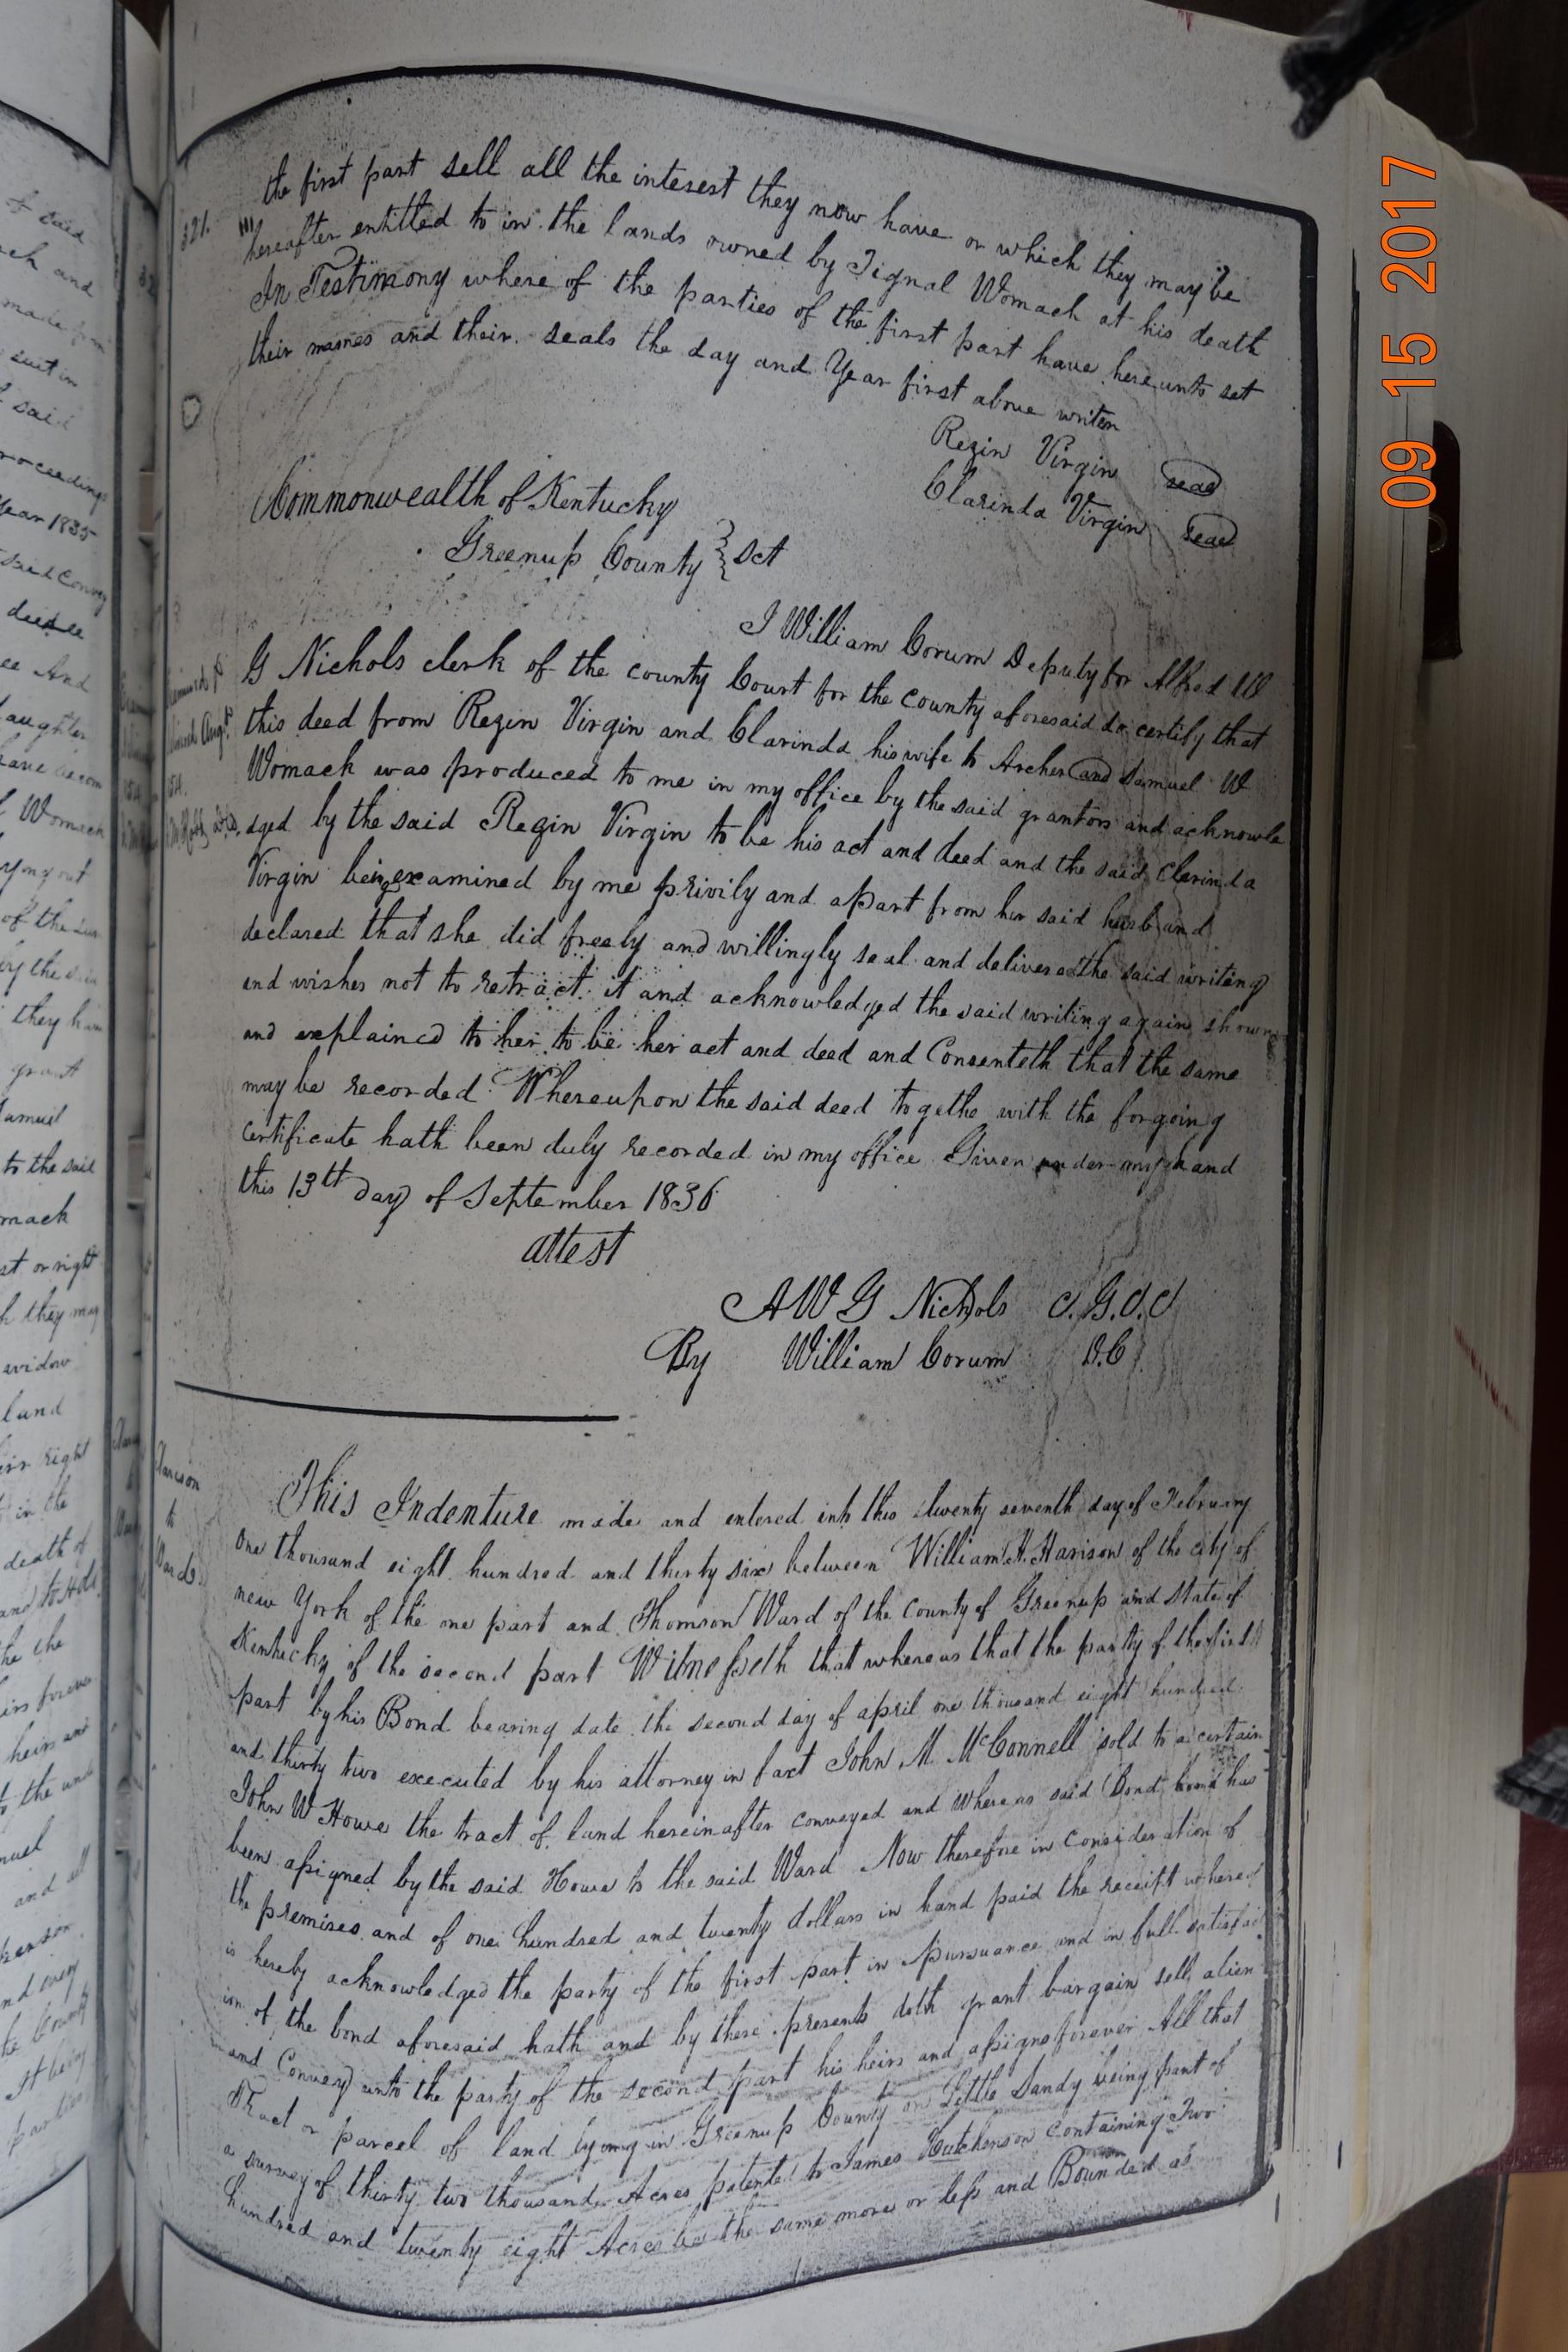 321.
the first part sell all the interest they now have or which they may be
hereafter entitled to in the lands owned by Tignal Womack at his death
In Testimony where of the parties of the first part have hereunto set
their names and their seals the day and Year first above writen
Rezin Virgin seal
Clarinda Virgin seal
Commonwealth of Kentucky
Greenup County } Sct
I William Corum Deputy for Alfred W
G Nichols clerk of the county Court for the county aforesaid do certify that
this deed from Rezin Virgin and Clarinda his wife to Archer and Samuel W
Womack was produced to me in my office by the said grantors and acknowle
dged by the said Rezin Virgin to be his act and deed and the said Clarinda
Virgin being examined by me privily and apart from her said husband
declared that she did freely and willingly seal and delivered the said writing
and wishes not to retract it and acknowledged the said writing again shown
and explained to her to be her act and deed and Consenteth that the same
may be recorded Whereupon the said deed togethe with the forgoing
certificate hath been duly recorded in my office Given under my hand
this 13th day of September 1836
attest
AWG Nichols C.G.C.C
By William Corum D.C
to
This Indenture made and entered into this twenty seventh day of February
One thousand eight hundred and thirty six between William H. Harison of the city of
new York of the one part and Thomson Ward of the County of Greenup and State of
Kentucky of the second part Witnesseth that whereas that the party of the first
part by his Bond bearing date the second day of april one thousand eight hundred
and thirty two executed by his attorney in fact John M. McConnell sold to a certain
John W Howe the tract of land hereinafter conveyed and Whereas said Bond has
been assigned by the said Howe to the said Ward Now therefore in Consideration of
the premises and of one hundred and twenty dollars in hand paid the receipt whereof
is hereby acknowledged the party of the first part in pursuance and in full satisfact
ion of the bond aforesaid hath and by these presents doth grant bargain sell alien
and Convey unto the party of the second part his heirs and assigns forever All that
Tract or parcel of land lyong in Greenup County on Little Sandy being part of
a survey of thirty two thousand Acres patented to James Hutchenson Containing Two
hundred and twenty eight Acres be the same more or less and Bounded as
09 15 2017